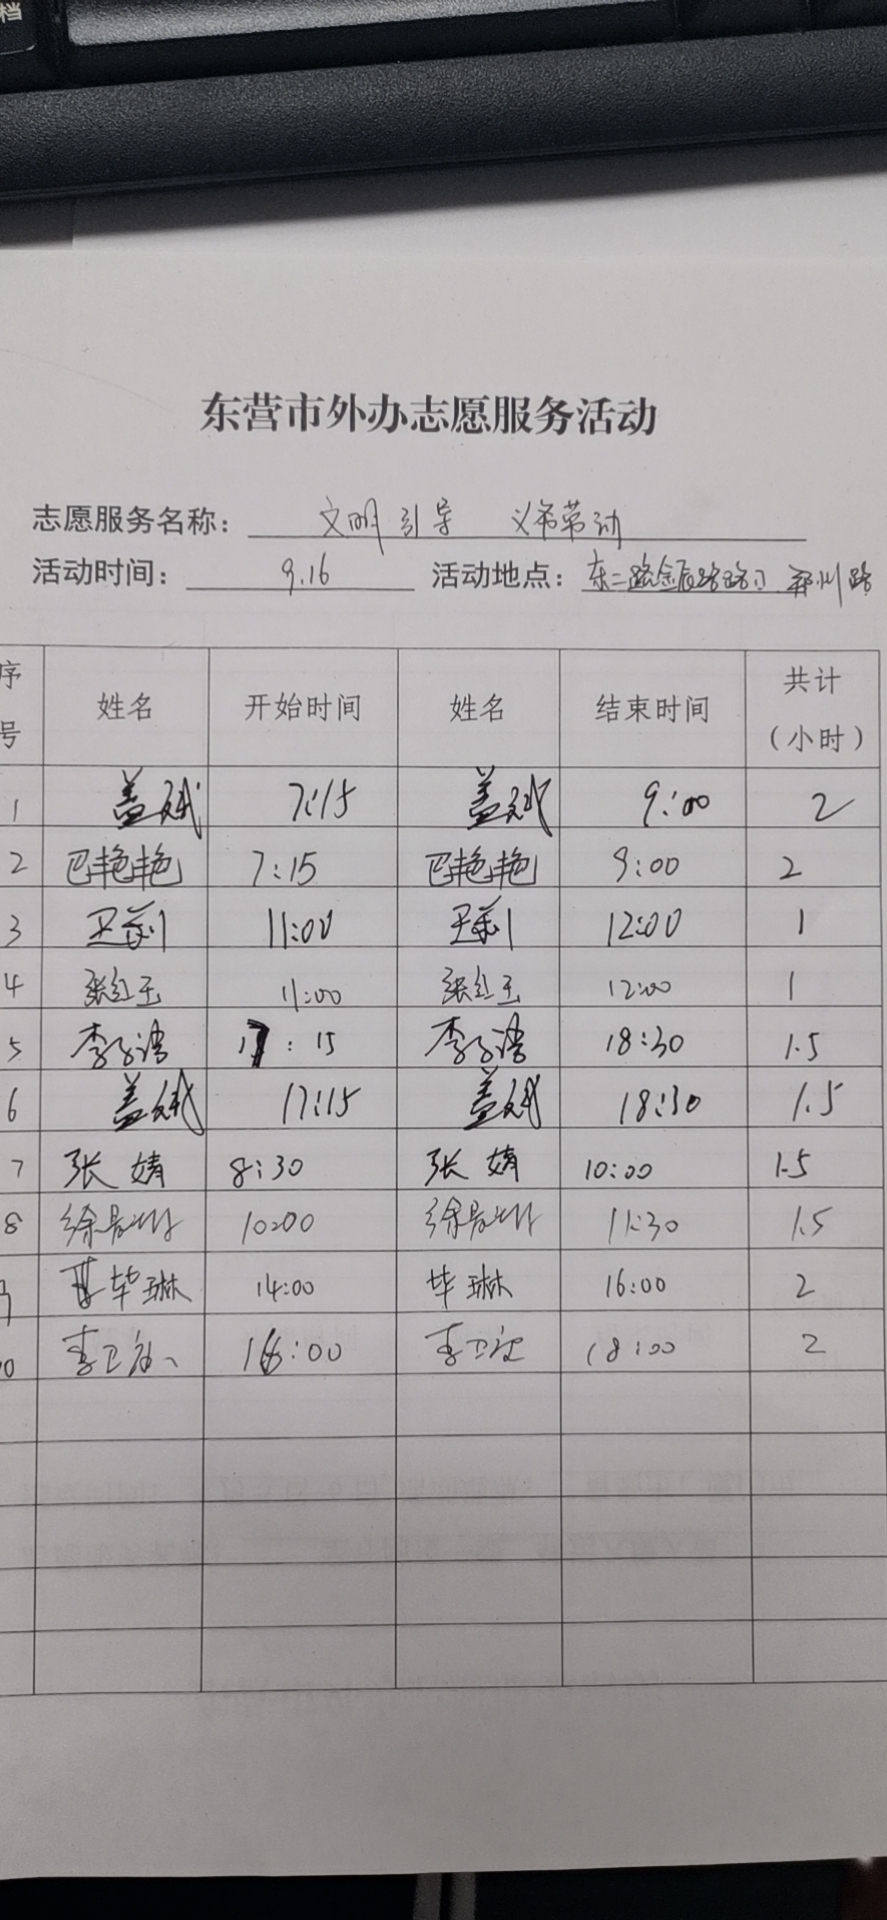 档
东营市外办志愿服务活动
志愿服务名称: 文明引导 义务劳动
活动时间: 9.16 活动地点: 东二路金辰路路口 郑州路
序号 姓名 开始时间 姓名 结束时间 共计(小时)
1 盖斌 7:15 盖斌 9:00 2
2 巴艳艳 7:15 巴艳艳 9:00 2
3 11:00 12:00 1
4 张红玉 11:00 张红玉 12:00 1
5 李子涛 17:15 李子涛 18:30 1.5
6 盖斌 17:15 盖斌 18:30 1.5
7 张婧 8:30 张婧 10:00 1.5
8 徐 10:00 徐 11:30 1.5
9 毕琳 14:00 毕琳 16:00 2
10 李卫 16:00 李卫 18:00 2